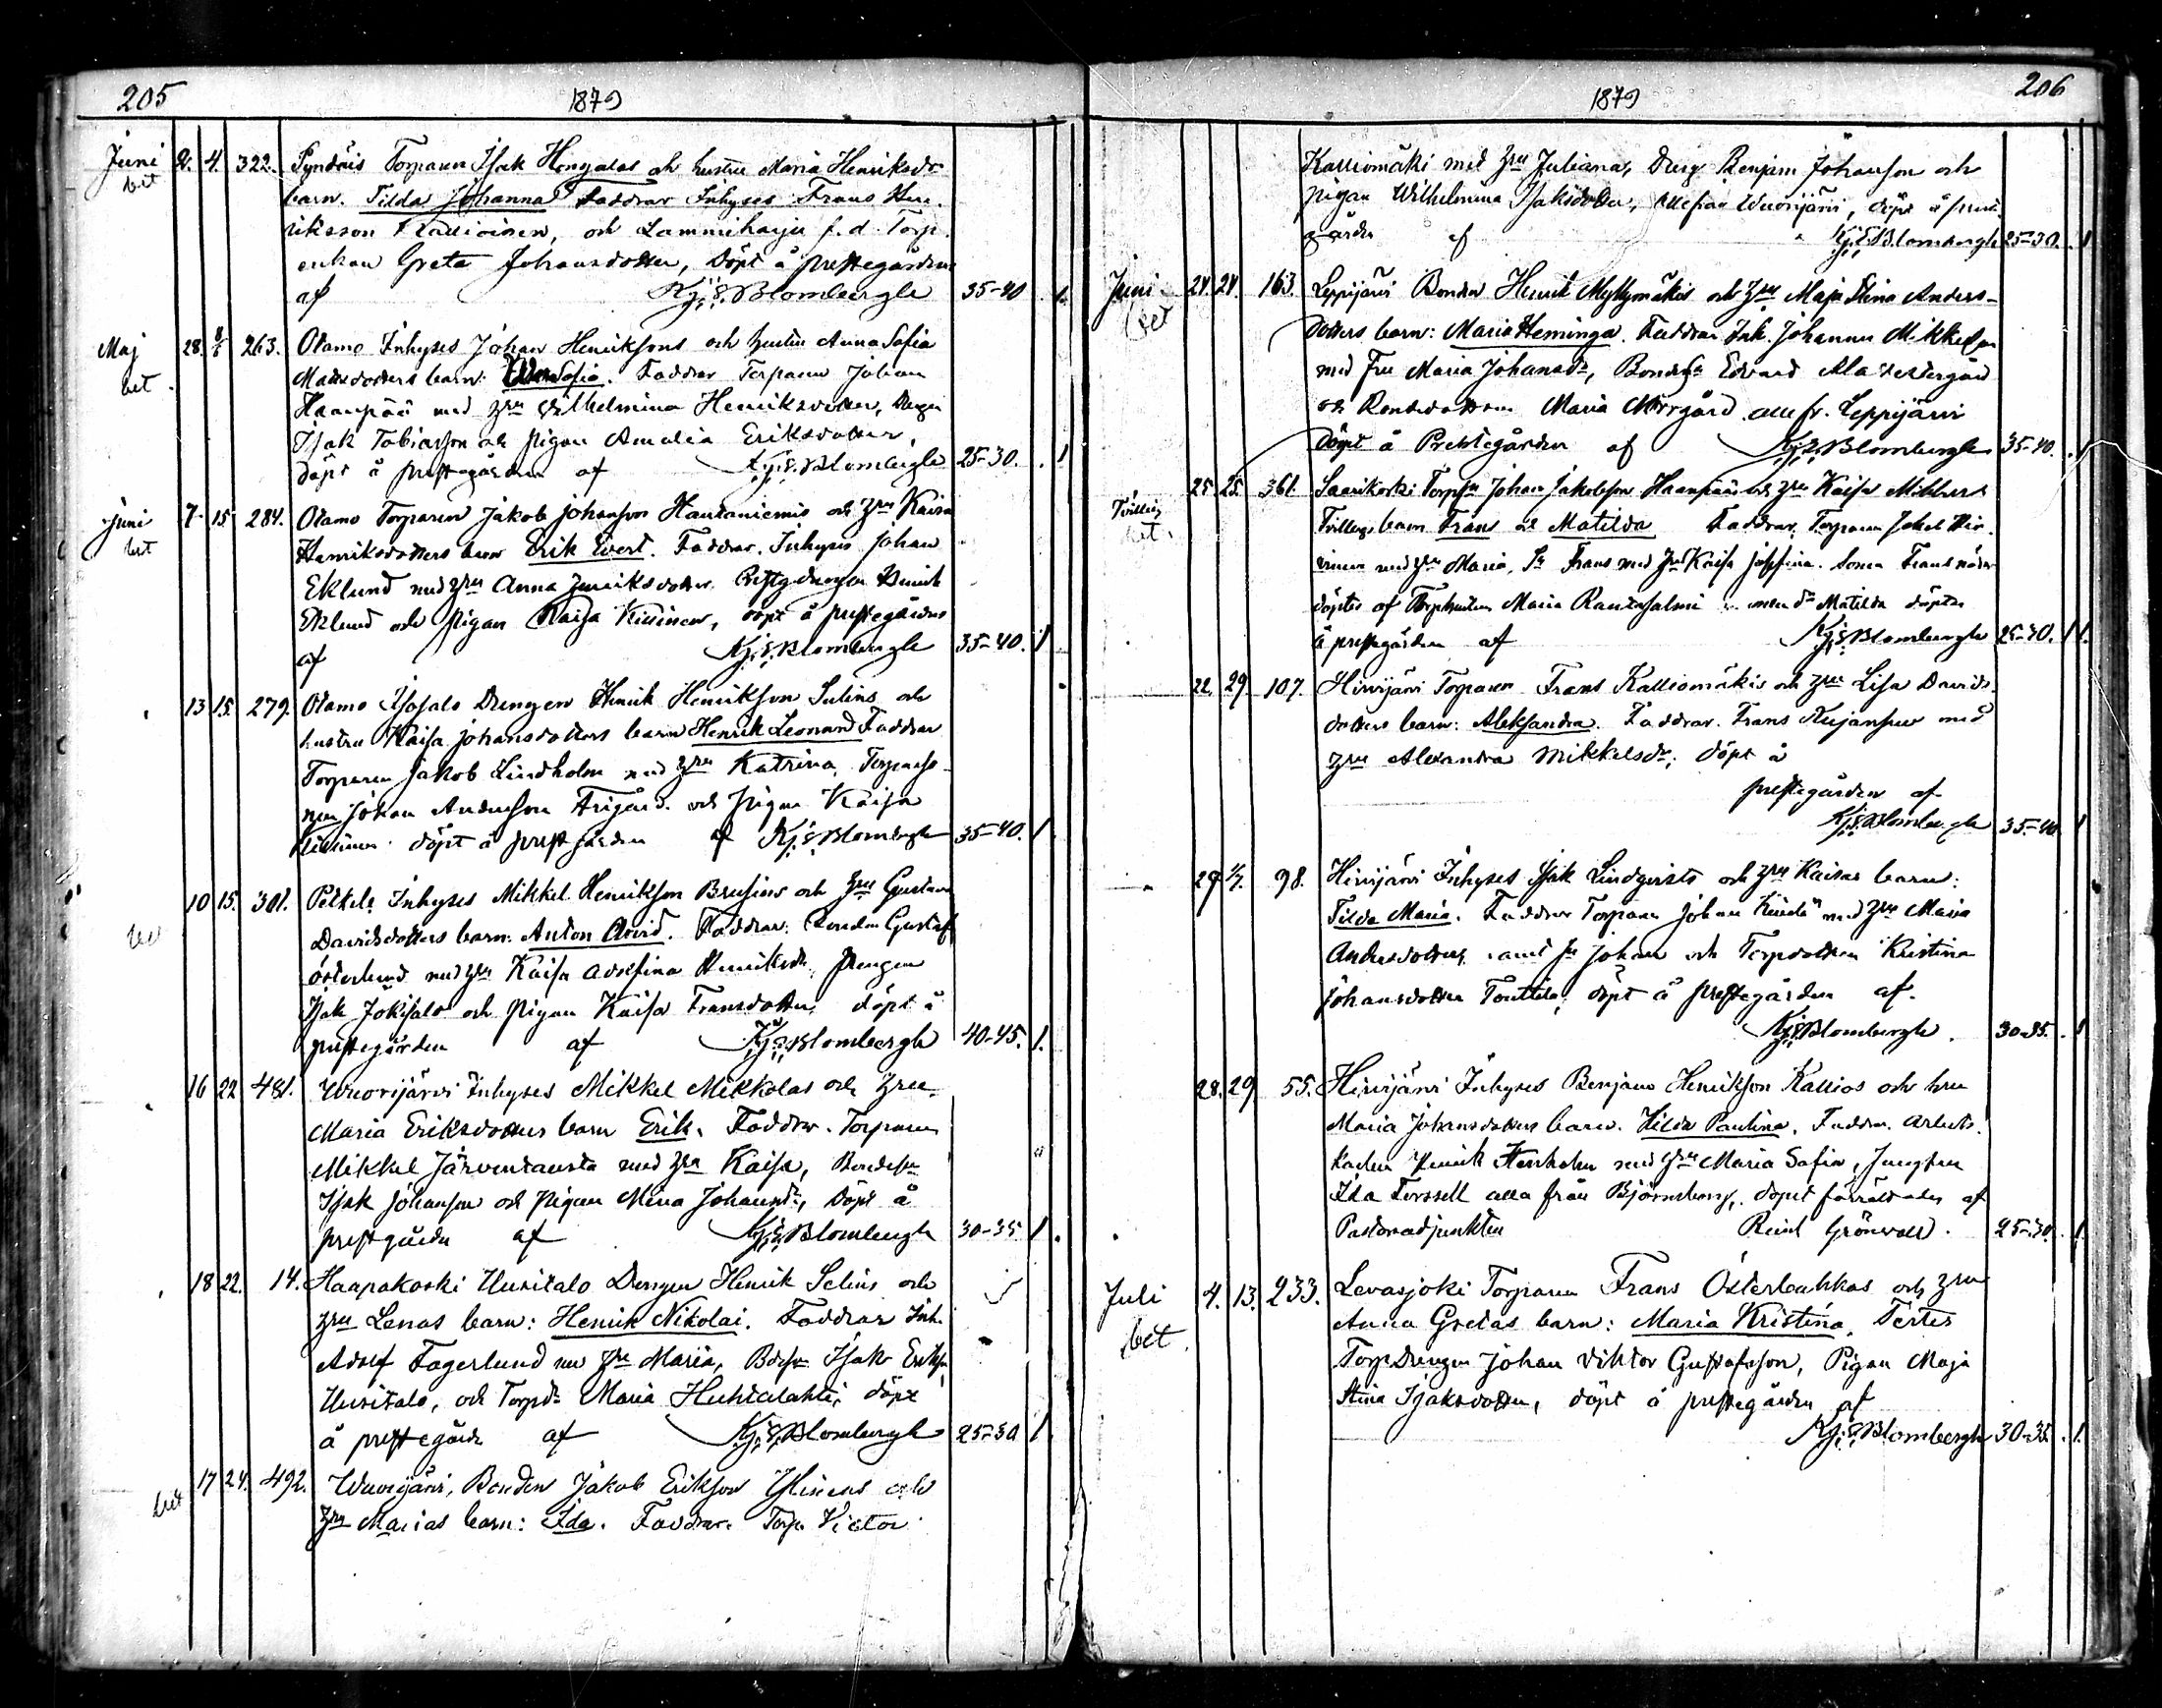 205
1879
Juni 2. 4. 322. Torparen Isak Hongalas och hustru Maria Henriksdr
bet barn. Tilda Johanna Faddrar Inhyses Frans Hen-
riksson Kallioinen, och Lammiharju f.d. Torp.
enkan Greta Johansdotter, döpt å prestegården
af Kj. E. Blombergh 35-40 1.
Maj 28. 8/6 263. Otamo Inhyses Johan Henriksons och hustru Anna Sofia
bet. Matsdotters barn: Sofia. Faddrar Torparen Johan
Haanpää med hru Wilhelmina Henriksdotter, Dreng
Isak Tobiasson och pigan Amalia Eriksdotter,
döpt å prestegården af Kj. E. Blombergh 25-30. 1
Juni 7. 15 284. Otamo Torparen Jakob Johanson Hautaniemis och hru Kaisa
bet Henriksdotters barn Erik Evert. Faddrar. Inhyses Johan
Eklund med hru Anna Henriksdotter Henrik
Eklund och pigan Kaisa Kiisinen, döpt å prestegården
af Kj. E. Blombergh 35-40. 1
13 15. 279. Otamo Isosalo Drengen Henrik Henrikson Sulins och
hustru Kaisa Johansdotters barn Henrik Leonard Faddrar
Torparen Jakob Lindholm med hru Katrina, Torpareso-
nen Johan Anderson Frigård och pigan Kaisa
döpt å prestgården af Kj. E. Blombergh 35-40. 1
10 15. 301. Inhyses Mikkel Henrikson Brusins och hru Gustava
bet Davidsdotters barn: Anton Arvid. Faddrar: Bonden Gustaf
Österlund med hru Kaisa Adolfina Henriksdr, Drengen
Isak Jokisalo och pigan Kaisa Fransdotter, döpt å
prestegården af Kj. E. Blombergh 40-45. 1.
16 22 481. Wuorijärvi Inhyses Mikkel Mikkolas och hru
Maria Eriksdotters barn Erik. Faddrar. Torparen
Mikkel Järventausta med hru Kaisa, Bondeson
Isak Johanson och pigan Mina Johansdr, döpt å
prestgården af Kj. E. Blombergh 30-35 1
18 22. 14. Haapakoski Uusitalo Drengen Henrik Selins och
hru Lenas barn: Henrik Nikolai. Faddrar Inh.
Adolf Fagerlund med hru Maria, Isak Erikson
Uusitalo, och Torpdr Maria Huhtalahti, döpt
å prestegården af Kj. E. Blombergh 25-30 1
17 24. 492. Wuorijärvi, Bonden Jakob Erikson Ylinens och
bet hru Marias barn: Ida. Faddrar. Torp. Victor
206
1879
Kalliomäki med hru Juliana, Dreng Benjam Johanson och
pigan Wilhelmina Isaksdotter, alla från Wuorijärvi, döpt å preste
gården af Kj. E. Blombergh 25-30. 1
Juni 24. 24. 163. Leppijärvi Bonden Henrik Myllymäkis och hru Maja Stina Anders-
bet dotters barn: Maria Heminga. Faddrar Inh. Johannes Mikkelson
med fru Maria Johansdr, Bondeson Edvard Ala Westergård
och Bondedottern Maria Norrgård alla fr. Leppijärvi
döpt å Prestegården af Kj. E. Blombergh 35-40. 1
25 25. 361. Saarikoski Johan Jakobson Haanpää och hru Kaisa
Tvilling
bet. Tvillings barn Frans och Matilda Faddrar, Torparen
med hru Maria, Frans med hru Kaisa Josefina. Frans
döptes af Maria Rautasalmi men Matilda döptes
å prestegården af Kj. E. Blombergh 25-30. 1.
22 29. 107. Hirvijärvi Torparen Frans Kalliomäkis och hru Lisa Davids
dotters barn: Aleksandra. Faddrar. Frans Kujanpää med
hru Alexandra Mikkelsdr, döpt å
prestegården af
Kj. E. Blombergh 35-40 1
29 98. Hirvijärvi Inhyses Isak Lindqvists och hru Kaisas barn:
Tilda Maria. Faddrar Torparen Johan med hru Maria
Andersdotter, samt Johan och Torpdottern Kristina
Johansdotter Touttila, döpt å prestegården af
Kj. E. Blombergh. 30-35. 1
28. 29 55. Hirvijärvi Inhyses Benjam Henrikson Kallios och hru
Maria Johansdotters barn. Hilda Paulina. Faddrar. Arbets-
karlen Henrik med hru Maria Sofia, Jungfru
Ida Forssell alla från Björneborg, dopet förrättades af
Pastorsadjunkten Reinh Grönvall. 25-30. 1.
Juli 4. 13. 233. Levasjoki Torparen Frans Österbackas och hru
bet. Anna Gretas barn: Maria Kristina. Testes
Torp Drengen Johan Viktor Gustafsson, Pigan Maja
Stina Isaksdotter, döpt å prestegården af
Kj. E. Blombergh 30-35. 1.